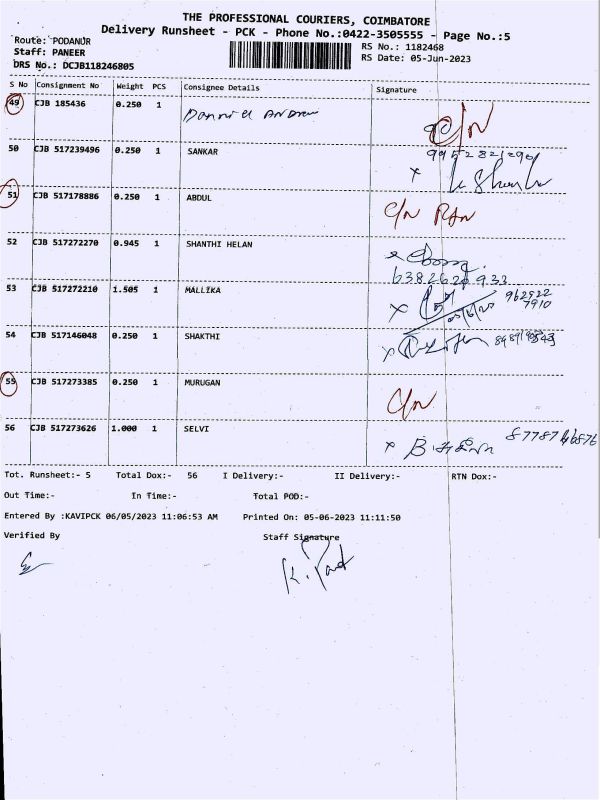 THE PROFESSIONAL COURIERS, COIMBATORE
Delivery Runsheet - PCK - Phone No.:0422-3505555 - Page No.:5
Route: PODANUR
RS No.: 1182468
Staff: PANEER
RS Date: 05-Jun-2023
DRS No.: DCJB118246805
S No Consignment No Weight PCS Consignee Details Signature
49 CJB 185436 0.250 1 C/N
50 CJB 517239496 0.250 1 SANKAR
51 CJB 517178886 0.250 1 ABDUL C/N
52 CJB 517272270 0.945 1 SHANTHI HELAN
53 CJB 517272210 1.505 1 MALLIKA
7910
54 CJB 517146048 0.250 1 SHAKTHI
55 CJB 517273385 0.250 1 MURUGAN C/N
56 CJB 517273626 1.000 1 SELVI
Tot. Runsheet:- 5 Total Dox:- 56 I Delivery:- II Delivery:- RTN Dox:-
Out Time:- In Time:- Total POD:-
Entered By :KAVIPCK 06/05/2023 11:06:53 AM Printed On: 05-06-2023 11:11:50
Verified By Staff Signature